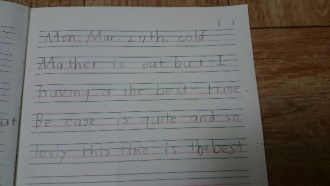 Mon. Mar 27th. cold
Mather is out but I
having a the best time.
Be case is quite and so
lovly this tine is thebest